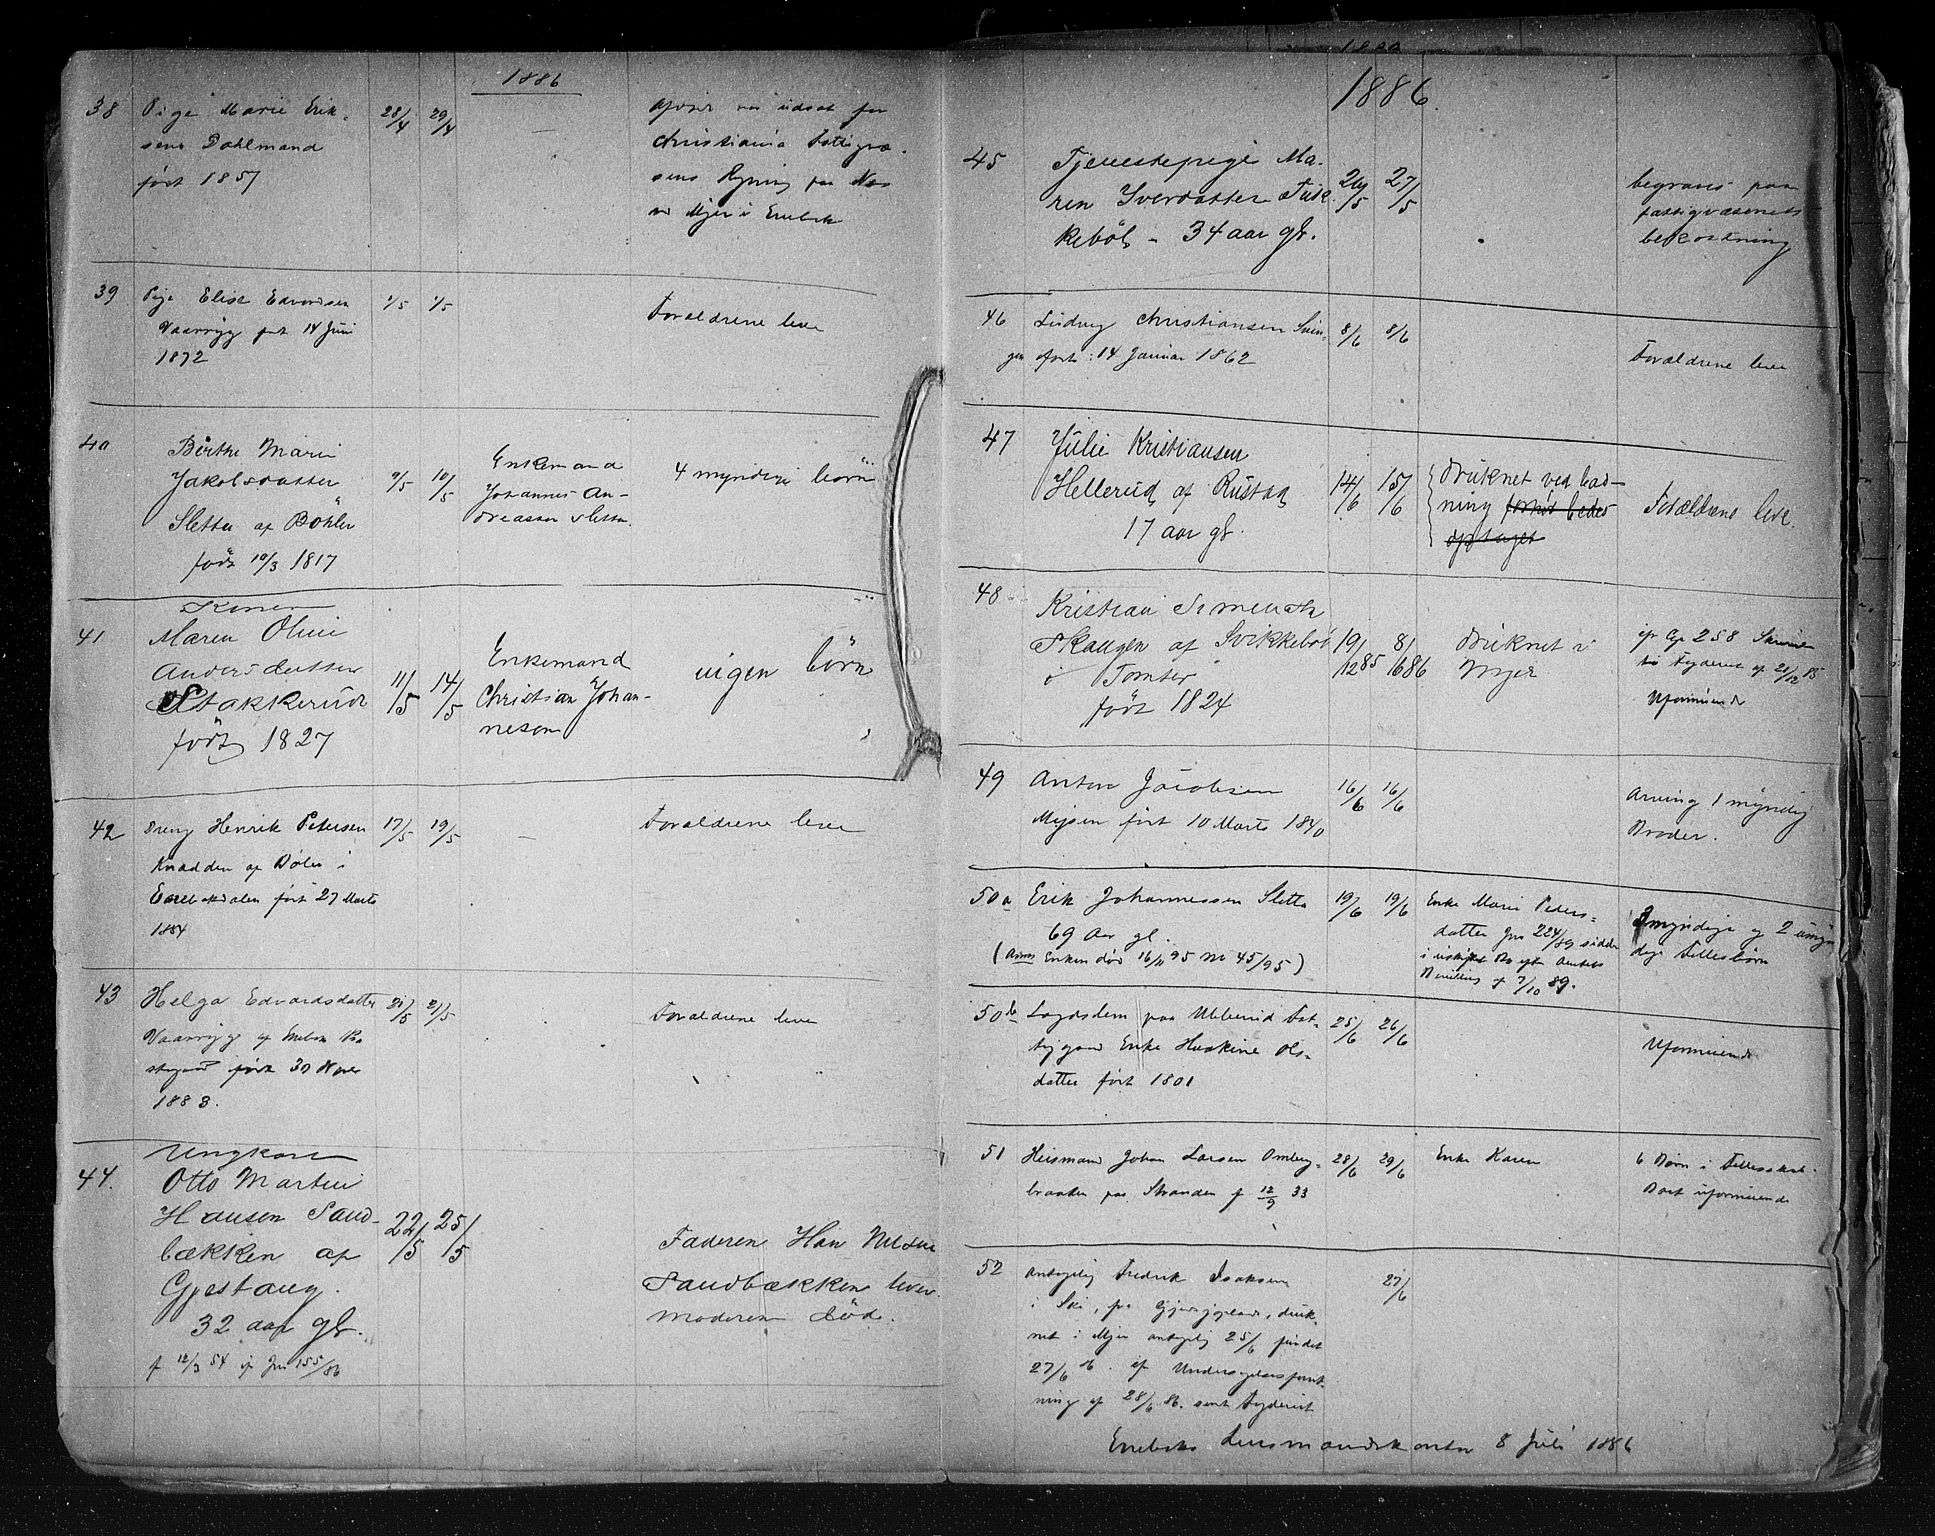 1886
38 Pige Marie Erik-
sens Dahlmand
født 1857
28/4 29/4
—
udsat for
Christiania Fattigvæ-
sens Regning paa
Mjær i Enebak
39 Pige Elise Edvardsen
Vaarryg født 14 Juni
1872
1/5 1/5
Forældrene leve
40 Birthe Marie
Jakobsdatter
Sletta af Bøhler
født 10/3 1817
9/5 10/5
Enkemand
Johannes An-
dreassen Sletta.
4 myndige børn
41 Konen
Maren Oline
Andersdatter
Stakkerud
født 1827
11/5 14/5
Enkemand
Christian Johan-
nesen
ingen børn
42 Dreng Henrik Petersen
Knadden af Bøler i
Enebakdalen født 27 Marts
1884
17/5 19/5
—
Forældrene leve
43 Helga Edvardsdatter
Vaarryg af Enebak Præ-
stegaard født 30 Novbr
1883.
21/5 21/5
Forældrene leve
44. Ungkarl
Otto Martin
Hansen Sand-
bækken af
Gjestang.
32 aar gl.
f 12/3 54 if Jnr 155/86
22/5 25/5
Faderen Han Nilsen
Sandbækken lever
moderen død.
1886.
45 Tjenestepige Ma-
ren Iverdatter Fusk-
kebøl - 34 aar gl.
26/5 27/5
begraves paa
fattigvæsenets
bekostning
46 Ludvig Christiansen Svin-
gen født: 14 Januar 1862
8/6 8/6
Forældrene leve
47 Julie Kristiansen
Hellerud af Rustad
17 aar gl.
14/6 15/6
druknet ved bad-
ning
optaget
Forældrene leve.
48 Kristian Simensen
Skaugen af Svikkebøl
i Tomter
født 1824
19/12 85 8/1 6 86
Druknet i
Mjær
if Jnr 258 Skrivelse
fra Fogderiet af 21/12 85
Uformuende
49 Anton Jacobsen
Mjøsen født 10 Marts 1840
16/6 16/6
Arving 1 myndig
Broder.
50a Erik Johannessen Sletta
69 Aar gl.
(Anm Enken død 16/11 95 No 45/95)
19/6 19/6
Enke Marie Peders-
datter Jnr 224/89 sidder
i uskiftet Bo efter Amtets
Bevilling af 7/10 89.
3 myndige og 2 umyn
dige Fellesbørn
50b Logdslem paa Ubberud Fat-
tiggaard Enke Haskine Ols-
datter født 1801
25/6 26/6
Uformuende
51 Huusmand Johan Larsen Omberg-
braaten paa Stranden f 12/9 33
28/6 29/6
Enke Karen
6 Børn i Fellesskab.
Boet uformuende
52 Antagelig Fredrik Isaksen
i Ski, fra Gjersjøen, druk-
net i Mjær antagelig 25/6 fundet
27/6 86. if Undersøgelsesforret-
ning af 28/6 86. sendt Fogderiet
27/6
Enebaks Lensmandskontor 8 Juli 1886